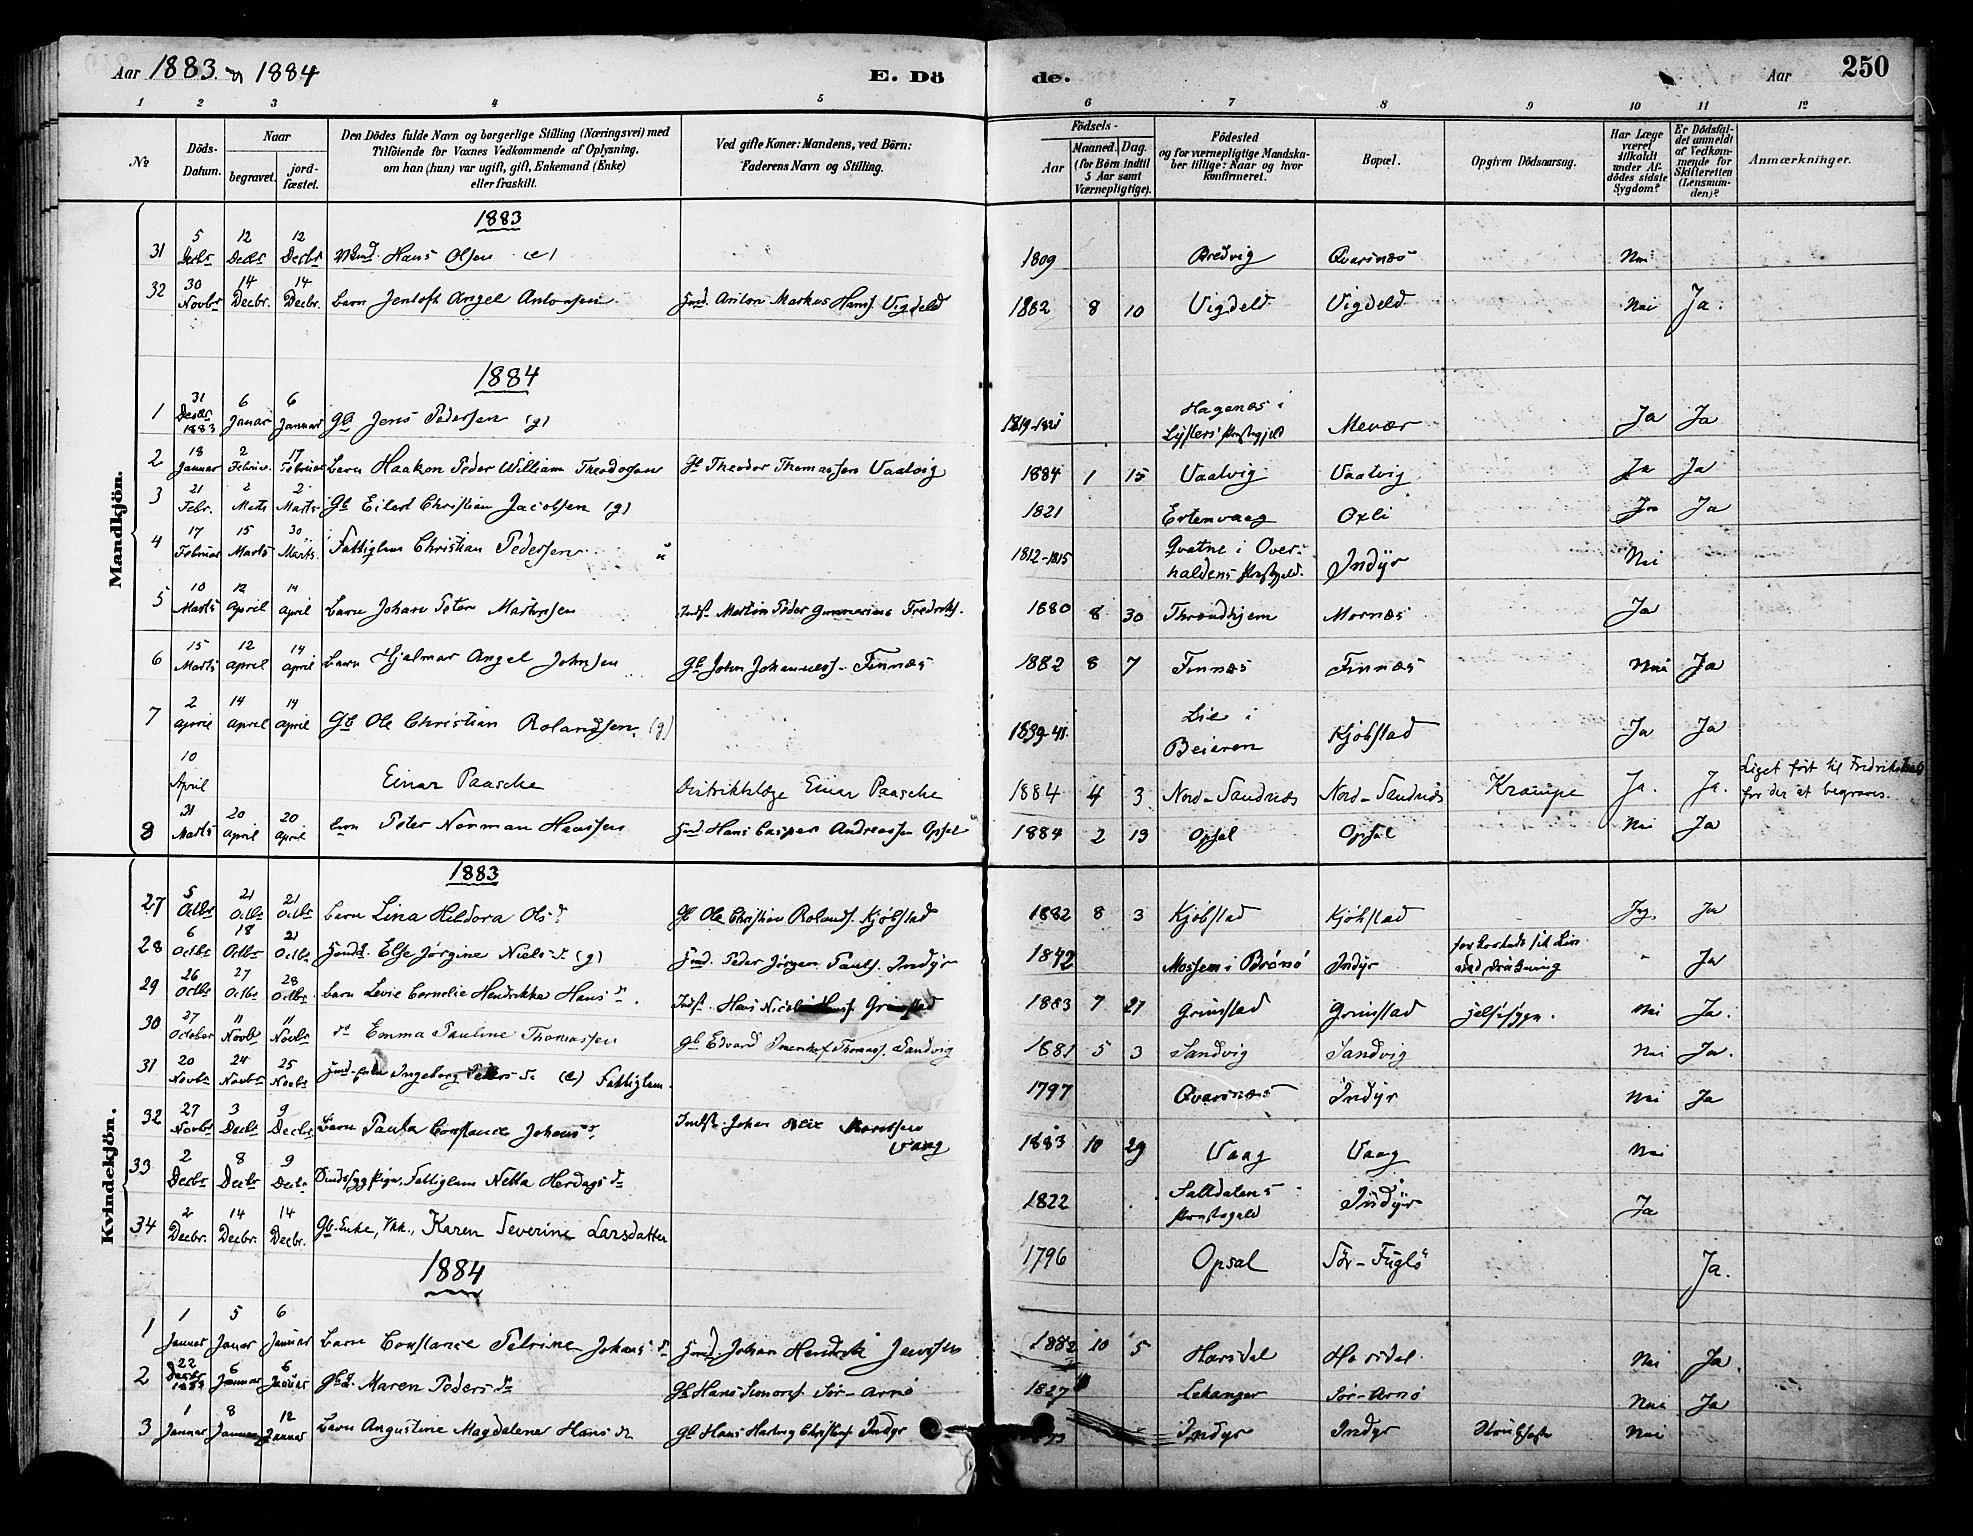 Aar 1883 og 1884 E. Dö de. Aar 250
1 2 3 4 5 6 7 8 9 10 11 12
No
Döds-Datum.
Naar
begravet.
jordfæstet.
Den Dödes fulde Navn og borgerlige Stilling (Næringsvei) med
Tilföiende for Voxnes Vedkommende af Oplysning,
om han (hun) var ugift, gift, Enkemand (Enke)
eller fraskilt.
Ved gifte Koner: Mandens, ved Börn:
Faderens Navn og Stilling.
Födsels-
Aar
Maaned. Dag.
(for Börn indtil
5 Aar samt
Værnepligtige).
Födested
og for værnepligtige Mandskaber tillige: Naar og hvor
konfirmeret.
Bopæl.
Opgiven Dödsaarsag.
Har Læge
været
tilkaldt
under Afdödes sidste
Sygdom?
Er Dödsfaldet anmeldt
af Vedkommende for
Skifteretten
(Lensmanden)?
Anmærkninger.
Mandkjön.
1883
31 5 Decbr 12 Decbr 12 Decbr Hans Olsen (e) 1809 Bredvig Qvarsnæs Nei
32 30 Novbr 14 Decbr. 14 Decbr. Barn Jentoft Angel Antonsen Gmd. Anton Markus Hans. Vigdeld 1882 8 10 Vigdeld Vigdeld Nei Ja.
1884
1 31 Decbr 1883 6 Januar 6 Januar Gb Jens Pedersen (g) 1819-1821 Hagenæs i Lysters Præstegjeld Mevær Ja Ja
2 18 Januar 2 Februar 17 Februar Barn Haakon Peder William Theodorsen Gb Theodor Thomassen Vaatvig 1884 1 15 Vaatvig Vaatvig Ja Ja
3 21 Febr. 2 Marts 2 Marts Gb Eilert Christian Jacobsen (g) 1821 Estenvaag Oxli Ja Ja
4 17 Februar 15 Marts 30 Marts. Fattiglem Christian Pedersen u 1812-1815 Qvatne i Overhaldens Præstegjeld. Indyr Nei
5 10 Marts 12 April 14 April Barn Johan Peter Martinsen Indst. Martin Peder Fredriks. 1880 8 30 Throndhjem Mornæs Ja
6 15 Marts 12 April 14 April Barn Hjalmar Angel Johnsen Gb John Johanness. Finnæs 1882 8 7 Finnæs Finnæs Nei Ja
7 2 April 14 April 14 April Gb Ole Christian Rolandsen. (g) 1839-41. Lie i Beieren Kjøbstad Ja Ja
10 April Einar Paasche Distriktslæge Einar Paasche 1884 4 3 Nord-Sandnæs Nord-Sandnæs Krampe Ja. Ja. Liget ført til Fredrikshald for der at begraves.
8 31 Marts 20 April 20 April barn Peter Norman Hanssen Gmd Hans Casper Andreassen Opsal 1884 2 19 Opsal Opsal Nei Ja
Kvindekjön.
1883
27 5 Octbr 21 Octbr 21 Octbr Barn Lina Hildora Olsd. Gb Ole Christian Rolands. Kjøbstad 1882 8 3 Kjøbstad Kjøbstad Ja
28 6 Octbr 18 Octbr 21 Octbr Else Jørgine Nielsd. (g) Gmd. Peder Jørgen Pauls. Indyr 1842 Mossem i Brønø Indyr Ja
29 26 Octbr 27 Octbr 28 Octbr. Barn Levie Cornelie Hendrikke Hansd. Indst. Hans Grimstad 1883 7 27 Grimstad Grimstad Nei Ja.
30 27 October 11 Novbr 11 Novbr do Emma Pauline Thomassen Gb Edvard Thomass. Sandvig 1881 5 3 Sandvig Sandvig Nei Ja.
31 20 Novbr 24 Novbr 25 Novbr Ingeborg Pedersd. (e) Fattiglem. 1797 Qvarsnæs Indyr Nei Ja
32 27 Novbr 3 Decbr 9 Decbr Barn Paula Constance Johansd. Indst. Johan Blix Vaag 1883 10 29 Vaag Vaag Nei
33 2 Decbr 8 Decbr 9 Decbr Sindssyg Pige, Fattiglem Netta Herdagsd. 1822 Saltdalens Præstegeld Indyr Ja
34 2 Decbr. 14 Decbr. 14 Decbr. Gb. Enke, Karen Severine Larsdatter 1796 Opsal Sör-Fuglö Ja.
1884
1 1 Januar 5 Januar 6 Januar Barn Constance Petrine Johansd. Gmd. Johan Hendrik Jenssen 1882 10 5 Horsdal Horsdal Nei Ja.
2 22 Decbr 1883 6 Januar 6 Januar Maren Pedersd. Gb Hans Simons. Sör-Arnø 1827 Lekanger Sör-Arnø Nei Ja
3 1 Januar 8 Januar 12 Januar Barn Augustine Magdalena Hansd. Gb Hans Hartvig Indyr Indyr Indyr Nei